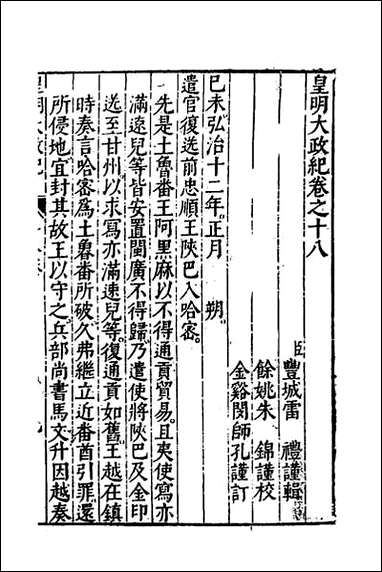 皇明大政紀卷之十八
臣豐城雷　禮謹輯
餘姚朱　錦謹校
金谿閔師孔謹訂
己未弘治十二年。正月　朔。
遣官復送前忠順王陝巴入哈密。
先是土魯番王阿黑麻以不得通貢貿易。且夷使寫亦
滿速兒等皆安置閩廣不得歸。乃遣使將陝巴及金印
送至甘州以求寫亦滿速兒等。復通貢如舊。王越在鎮
時奏言哈密爲土魯番所破久弗繼立近番酋引罪。還
所侵地宜封其故王以守之。兵部尚書馬文升因越奏
皇明大政紀